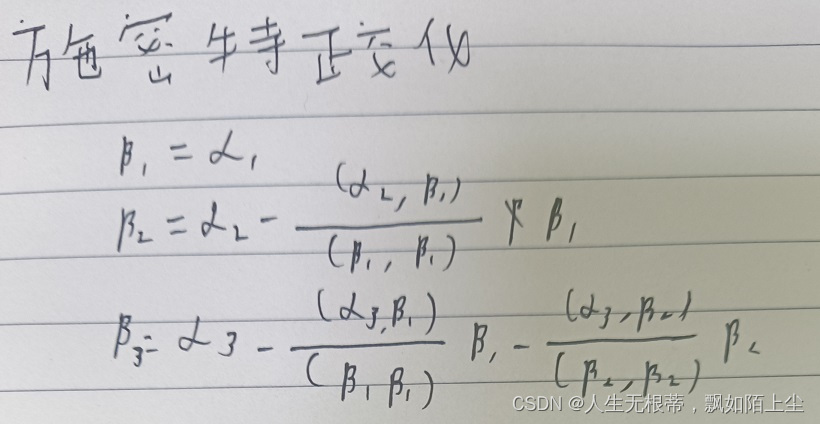 方色密牛特正交化
β₁ = α₁
β₂ = α₂ - (α₂, β₁) / (β₁, β₁) * β₁
β₃ = α3 - (α3, β₁) / (β₁ β₁) β₁ - (α3, β₂) / (β₂, β₂) β₂
CSDN @人生无根蒂，飘如陌上尘